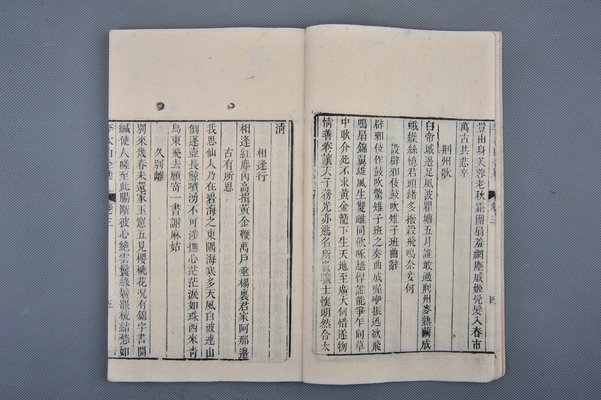 豈由身芙蓉老秋霜團扇羞網塵戚姬髡髮入舂市
萬古共悲辛
荊州歌
白帝城邊足風波瞿塘五月誰敢過荊州麥熟繭成
蛾繰絲憶君頭緒多撥穀飛鳴奈妾何
設辟邪伎鼓吹雉子班曲辭
辟邪伎作鼓吹驚雉子班之奏曲成喔咿振迅欲飛
鳴扇錦翼雄風生雙雌同飲啄趫悍誰能爭乍向草
中耿介死不求黃金籠下生天地至廣大何惜遂物
情善卷讓天子務光亦逃名所貴曠士懷朗然合太
清
相逢行
相逢紅塵內高揖黃金鞭萬戶垂楊裏君家阿那邊
古有所思
我思仙人乃在碧海之東隅海寒多天風白波連山
倒蓬壺長鯨噴湧不可涉撫心茫茫淚如珠西來青
鳥東飛去願寄一書謝麻姑
久別離
別來幾春未還家玉窗五見櫻桃花況有錦字書開
緘使人嗟至此腸斷彼心絕雲鬟綠鬢罷梳結愁如